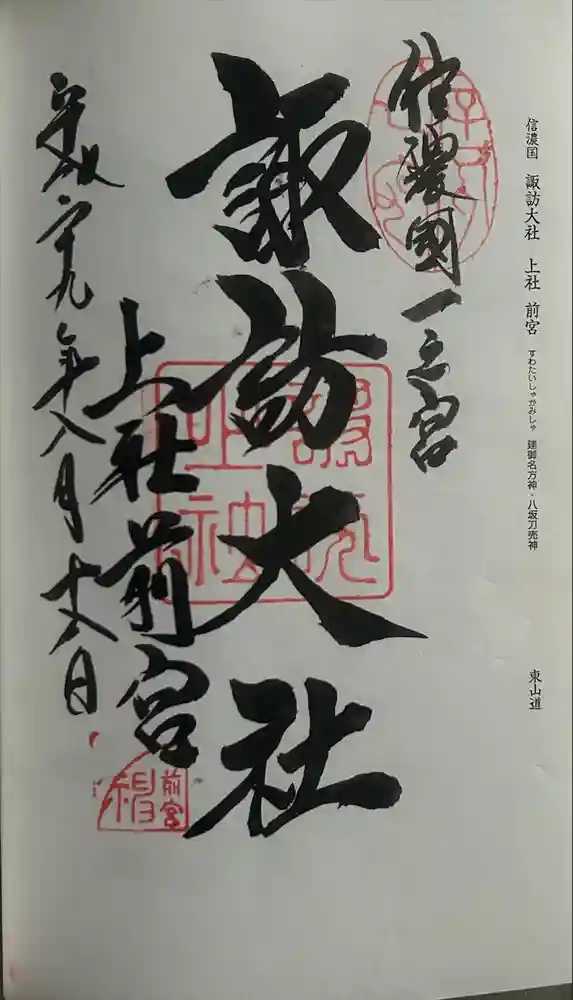 信濃国　諏訪大社　上社　前宮　すわたいしゃかみしゃ　建御名方神・八坂刀売神　東山道
信濃國一之宮
諏訪大社
上社前宮
平成二十九年八月十八日
前宮